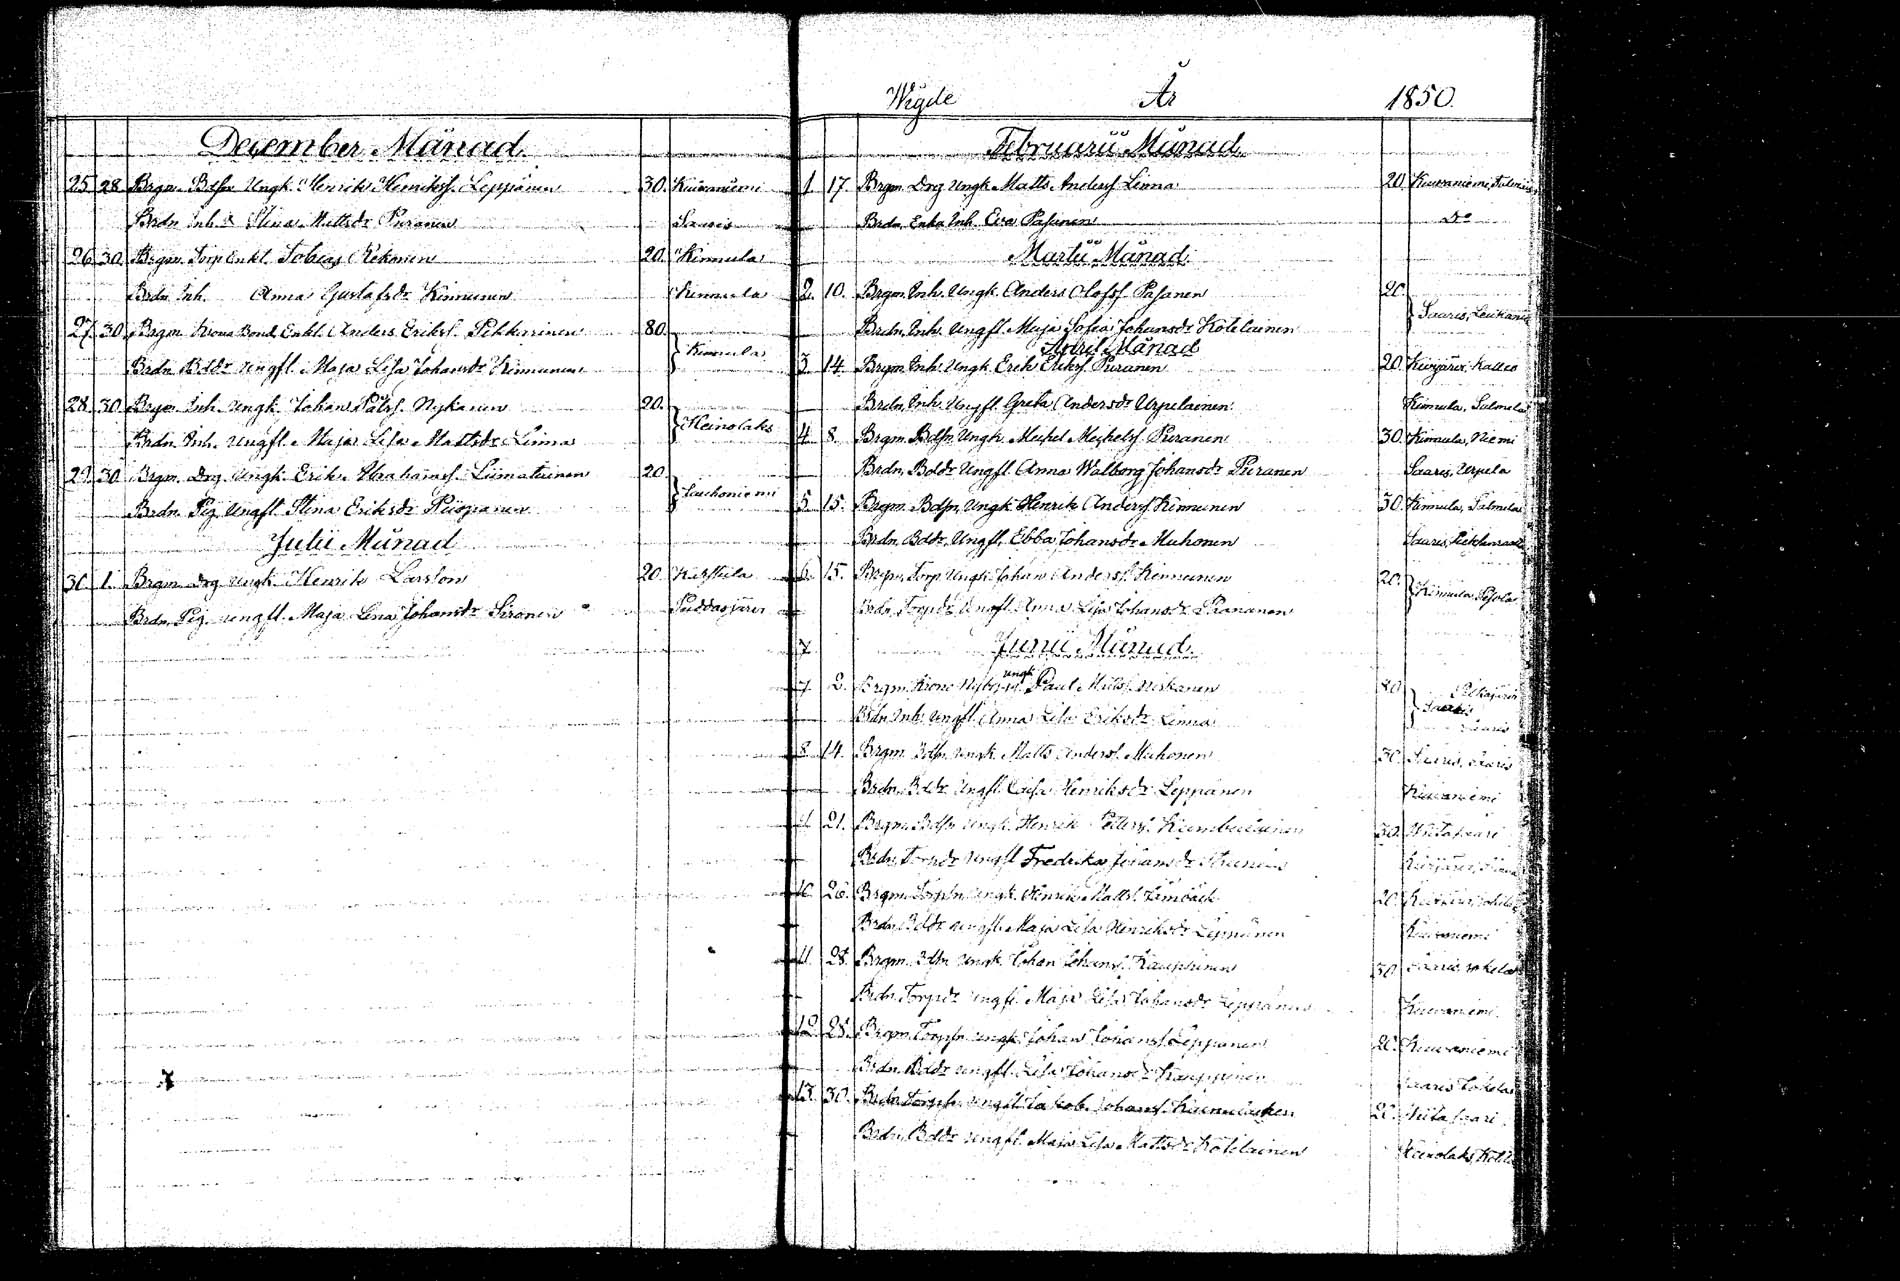 December Månad.
25 28 Brgm. Bdsn Ungk. Henrik Henrikss. Leppänen 30. Kiuwaniemi
Brdn Inh. Stina Mattsdr Puranen Saaris
26 30. Brgm. Torp Enkl. Tobias Rekonen 20. Kinnula
Brdn Inh. Anna Gustafsdr Kinnunen Kinnula
27. 30. Brgm. Krono Bond. Enkl. Anders Erikss. Pihkurinen 80.
Brdn Bddr Ungfl. Maja Lisa Johansdr Kinnunen Kinnula
28. 30 Brgm. Inh. Ungk. Johan Pålss. Nykänen 20.
Brdn. Inh. Ungfl. Maja Lisa Mattsdr Linna Heinolaks
29. 30 Brgm. Drg. Ungk. Erik Abrahamss. Liimatainen 20.
Brdn. Pig Ungfl. Stina Eriksdr Piispanen
Julii Månad
30 1. Brgm. Drg Ungk. Henrik Larsson 20.
Brdn. Pig. Ungfl. Maja Lena Johansdr Sironen Puddasjärvi
Wigde År 1850.
Februarii Månad
1 17. Brgm. Drg Ungk. Matts Anderss Linna 20 Kiuwaniemi,
Brdn. Enka Inh. Eva Pasanen Do
Martii Månad
2. 10. Brgm. Inh. Ungk. Anders Olofss. Pasanen 20.
Brdn. Inh. Ungfl. Maja Sofia Johansdr Kotilainen Saaris,
April Månad
3 14. Brgm. Inh. Ungk. Erik Erikss. Puranen 20. Kivijärvi
Brdn. Inh. Ungfl. Greta Andersdr Urpelainen Kinnula, Salmela
4 8. Brgm. Bdsn. Ungk. Mickel Mickelss. Puranen 30. Kinnula, Niemi
Brdn. Bddr Ungfl. Anna Walborg Johansdr Puranen Saaris, Urpela
5 15. Brgm. Bdsn. Ungk. Henrik Anderss Kinnunen 30. Kinnula, Salmela
Brdn. Bddr. Ungfl. Ebba Johansdr Muhonen Saaris,
6. 15. Brgm. Torp Ungk. Johan Anderss. Kinnunen 20.
Brdn. Torpdr Ungfl. Anna Lisa Johansdr Kinnula
7
Junii Månad.
7. 2. Brgm. Krono Nyby. ungk Paul Matss. Niskanen 80.
Brdn. Inh. Ungfl. Anna Lisa Eriksdr Linna Saaris
8 14. Brgm. Bdsn. Ungk. Matts Anderss. Muhonen 30. Saaris,
Brdn. Bddr. Ungfl. Caisa Henriksdr Leppänen Kiuwaniemi
21. Brgm. Bdsn Ungk. Henrik Petterss. 30.
Brdn. Torpdr Ungfl Fredrika Johansdr
10 26. Brgm. Torpsn. Ungk. Henrik Matts. 20.
Brdn. Bddr Ungfl. Maja Lisa Henriksdr Leppänen Kiuwaniemi
11 28 Brgm. Bdsn Ungk. Johan Johanss. Kauppinen 30.
Brdn. Torpdr Ungfl. Maja Lisa Johansdr Leppänen Kiuwaniemi.
12 28. Brgm. Torpsn Ungk. Johan Johanss. Leppänen 20. Kiuwaniemi
Brdn. Bddr Ungfl. Lisa Johansdr Kauppinen Saaris
13. 30. Brdn. Torpsn. Ungk Jakob Johanss. 20.
Brdn. Bddr Ungfl. Maja Lisa Mattsdr Kotilainen Heinolaks,